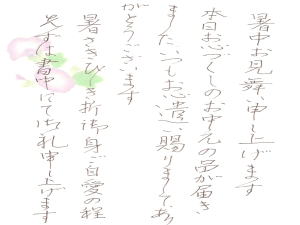 暑中お見舞い申し上げます
本日お心づくしのお中元の品が届き
ました。いつもお心遣い賜りまして、あり
がとうございます
暑さきびしき折御身ご自愛の程
まずは書中にて御礼申し上げます